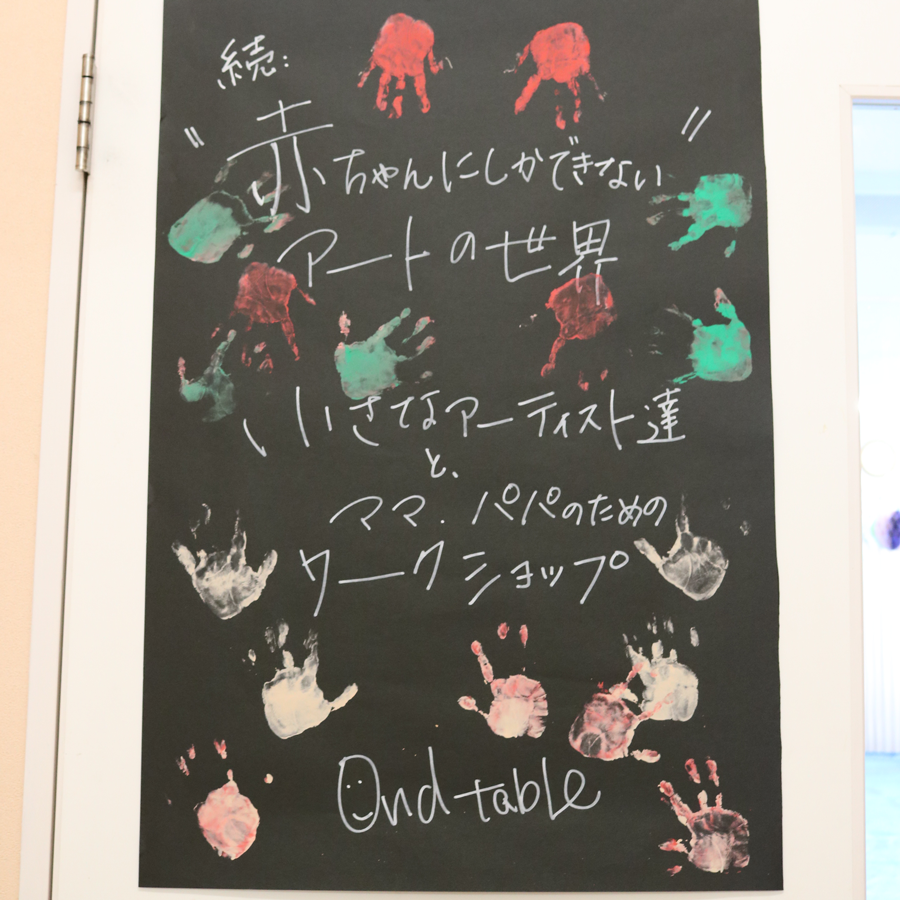 続:
"赤ちゃんにしかできない"
アートの世界
小さなアーティスト達
と、
ママ.パパのための
ワークショップ
Ond table